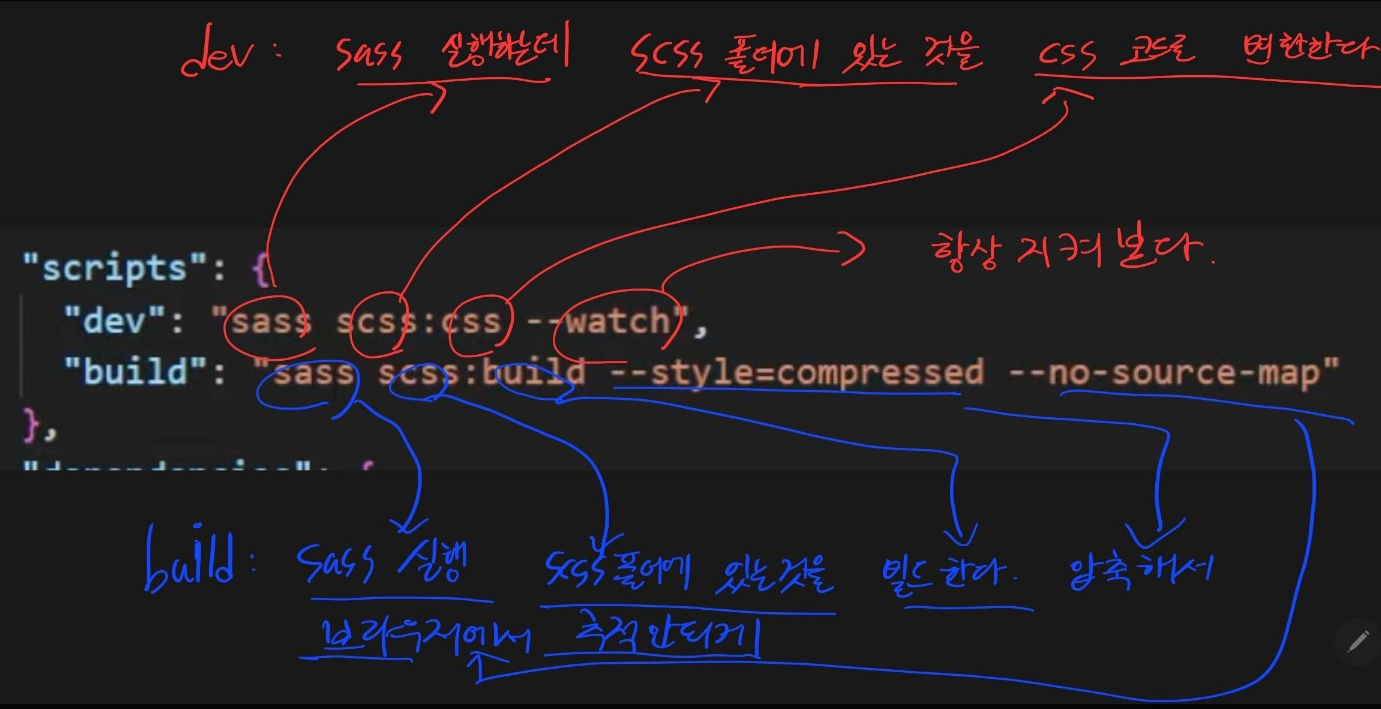 dev : sass 실행하는데 scss 폴더에 있는 것을 css 코드로 변환한다
항상 지켜 본다.
"scripts": {
"dev": "sass scss:css --watch",
"build": "sass scss:build --style=compressed --no-source-map"
},
"dependencies": {
build : sass 실행 scss폴더에 있는것을 빌드한다. 압축해서
브라우저에서 추적안되게